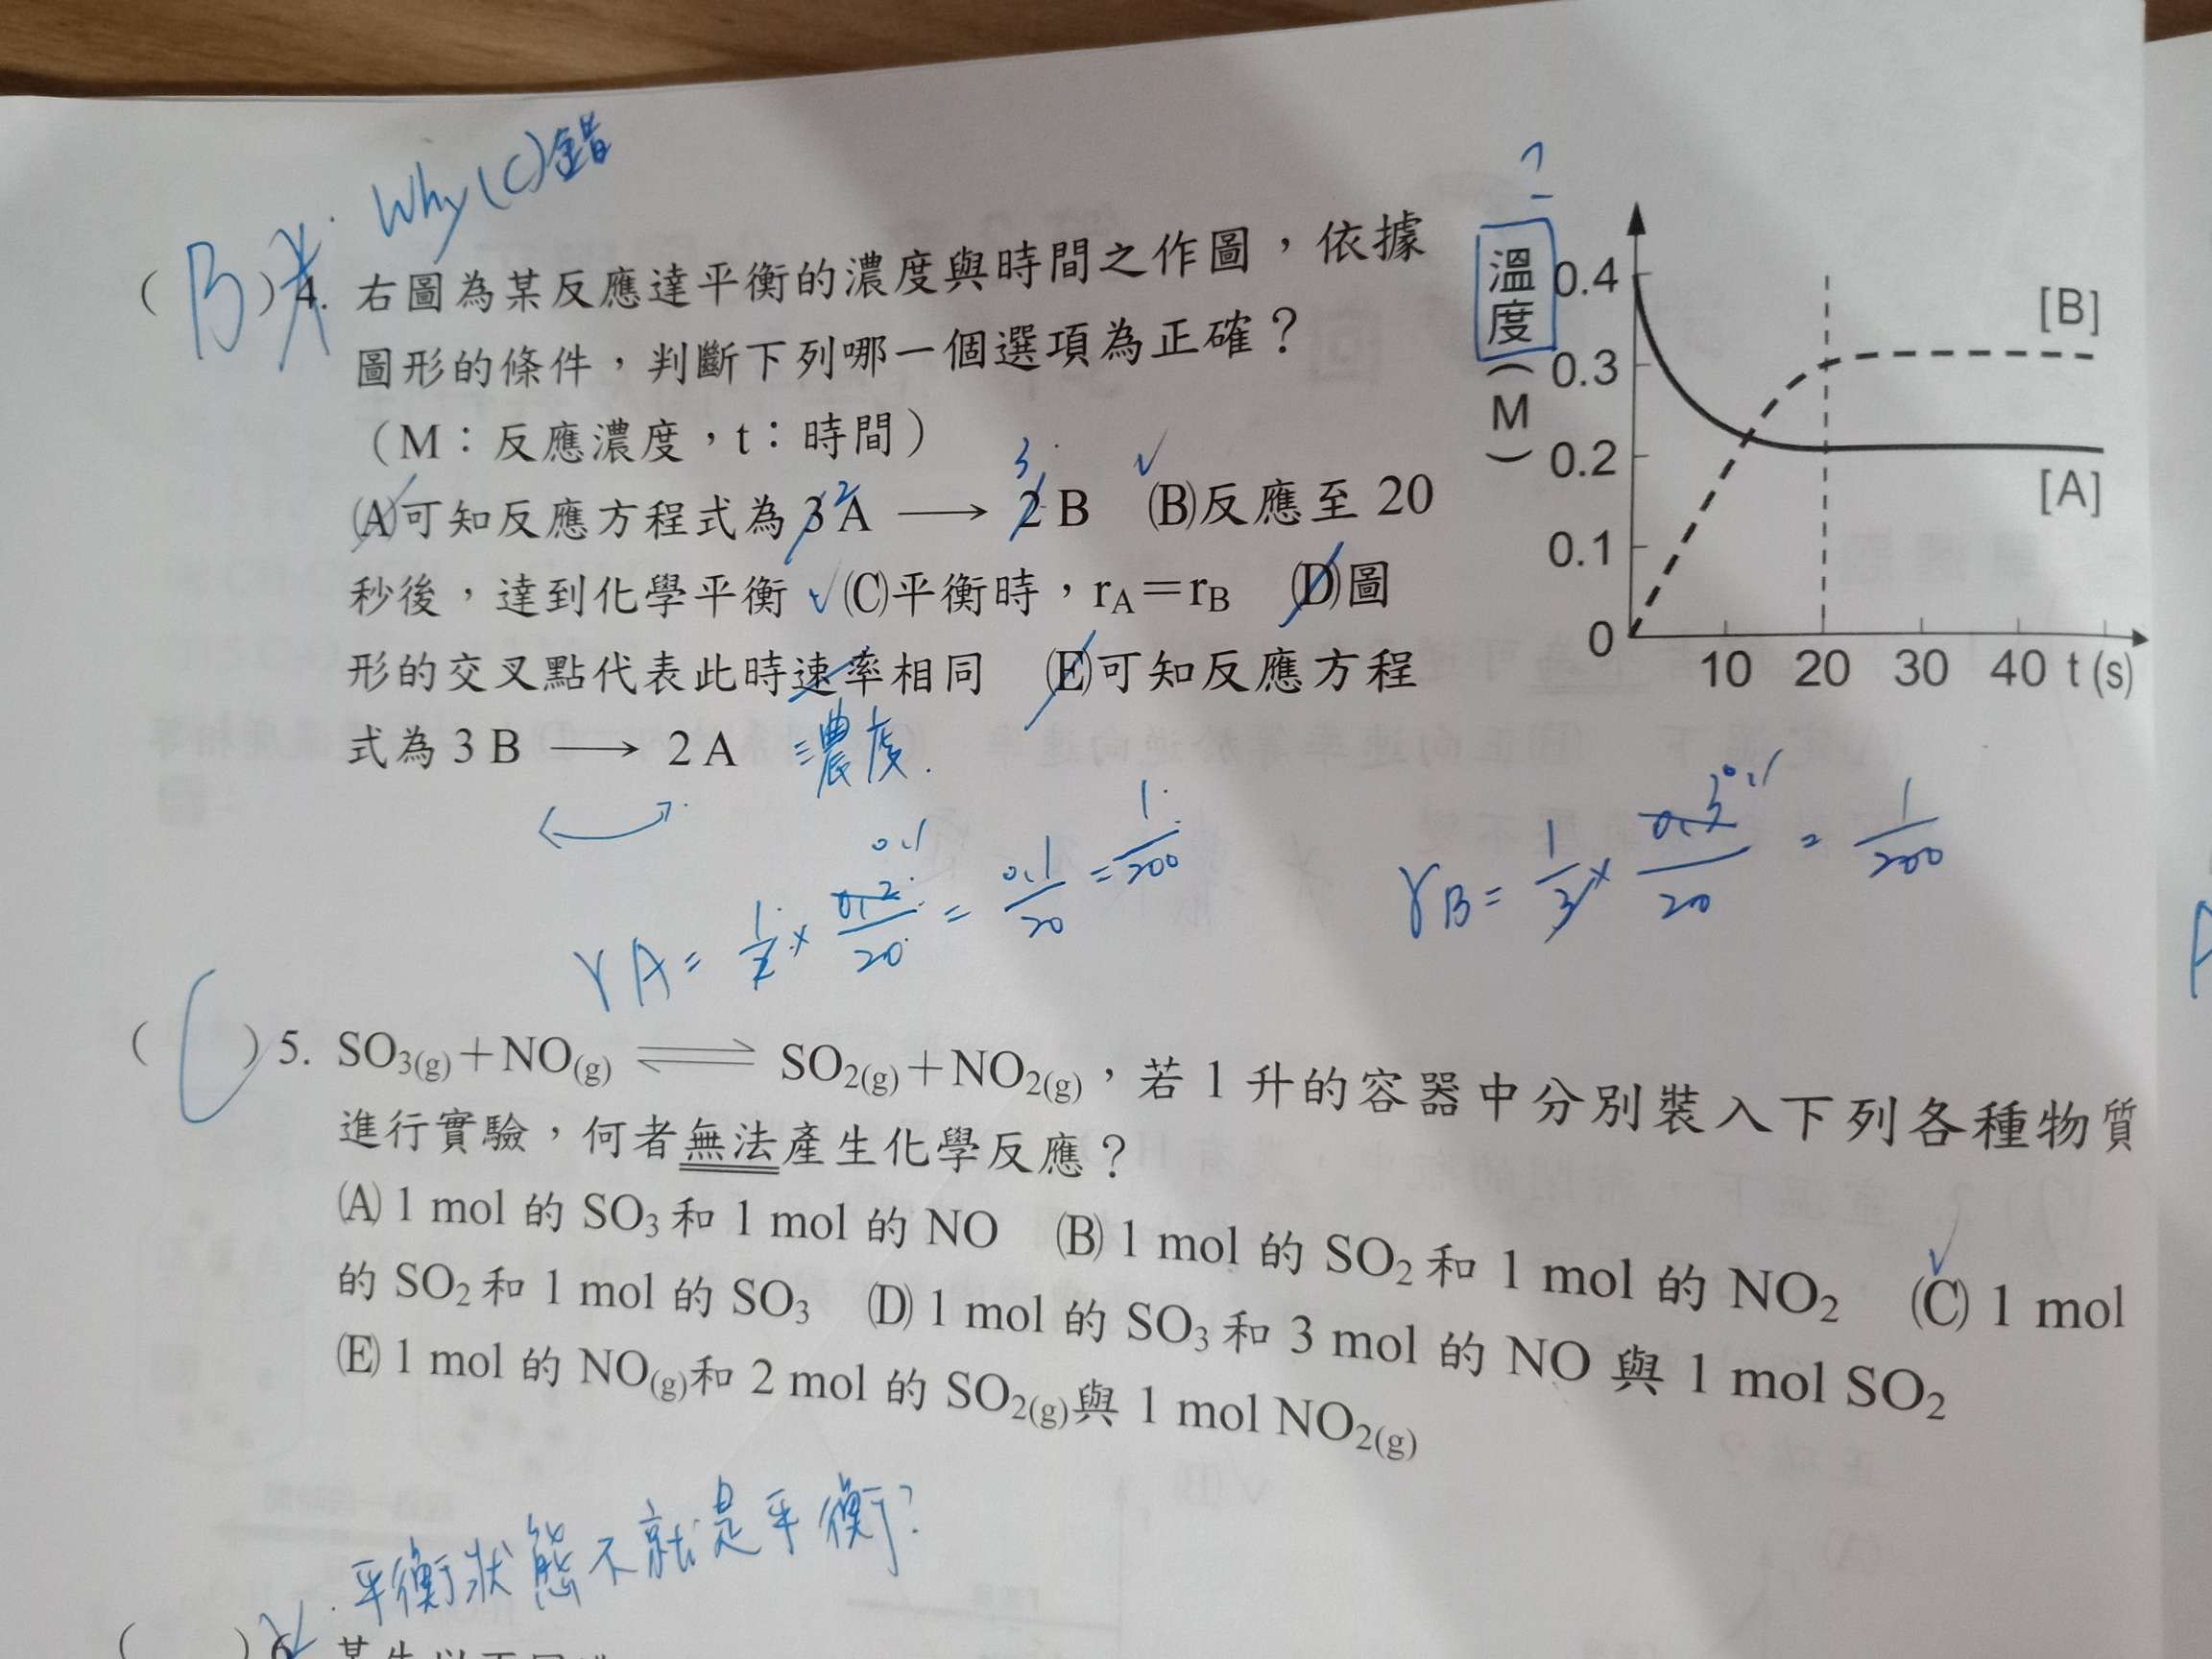 Why (C)錯
( B ) 4. 右圖為某反應達平衡的濃度與時間之作圖，依據
圖形的條件，判斷下列哪一個選項為正確？
（M：反應濃度，t：時間）
(A)可知反應方程式為 3 A ⟶ 2 B　(B)反應至 20
2 3 ✓
秒後，達到化學平衡 ✓(C)平衡時，rA＝rB　(D)圖
形的交叉點代表此時速率相同　(E)可知反應方程
式為 3 B ⟶ 2 A
濃度.
?
溫度（M）
0.4
0.3
0.2
0.1
0
10 20 30 40 t (s)
[B]
[A]
rA = 1/2 × 0.2/20 = 0.1/20 = 1/200
0.1
rB = 1/3 × 0.3/20 = 1/200
0.1
( C ) 5. SO3(g)＋NO(g) ⇌ SO2(g)＋NO2(g)，若 1 升的容器中分別裝入下列各種物質
進行實驗，何者無法產生化學反應？
(A) 1 mol 的 SO3 和 1 mol 的 NO　(B) 1 mol 的 SO2 和 1 mol 的 NO2　✓(C) 1 mol
的 SO2 和 1 mol 的 SO3　(D) 1 mol 的 SO3 和 3 mol 的 NO 與 1 mol SO2
(E) 1 mol 的 NO(g)和 2 mol 的 SO2(g)與 1 mol NO2(g)
平衡狀態不就是平衡?
( ) 6.